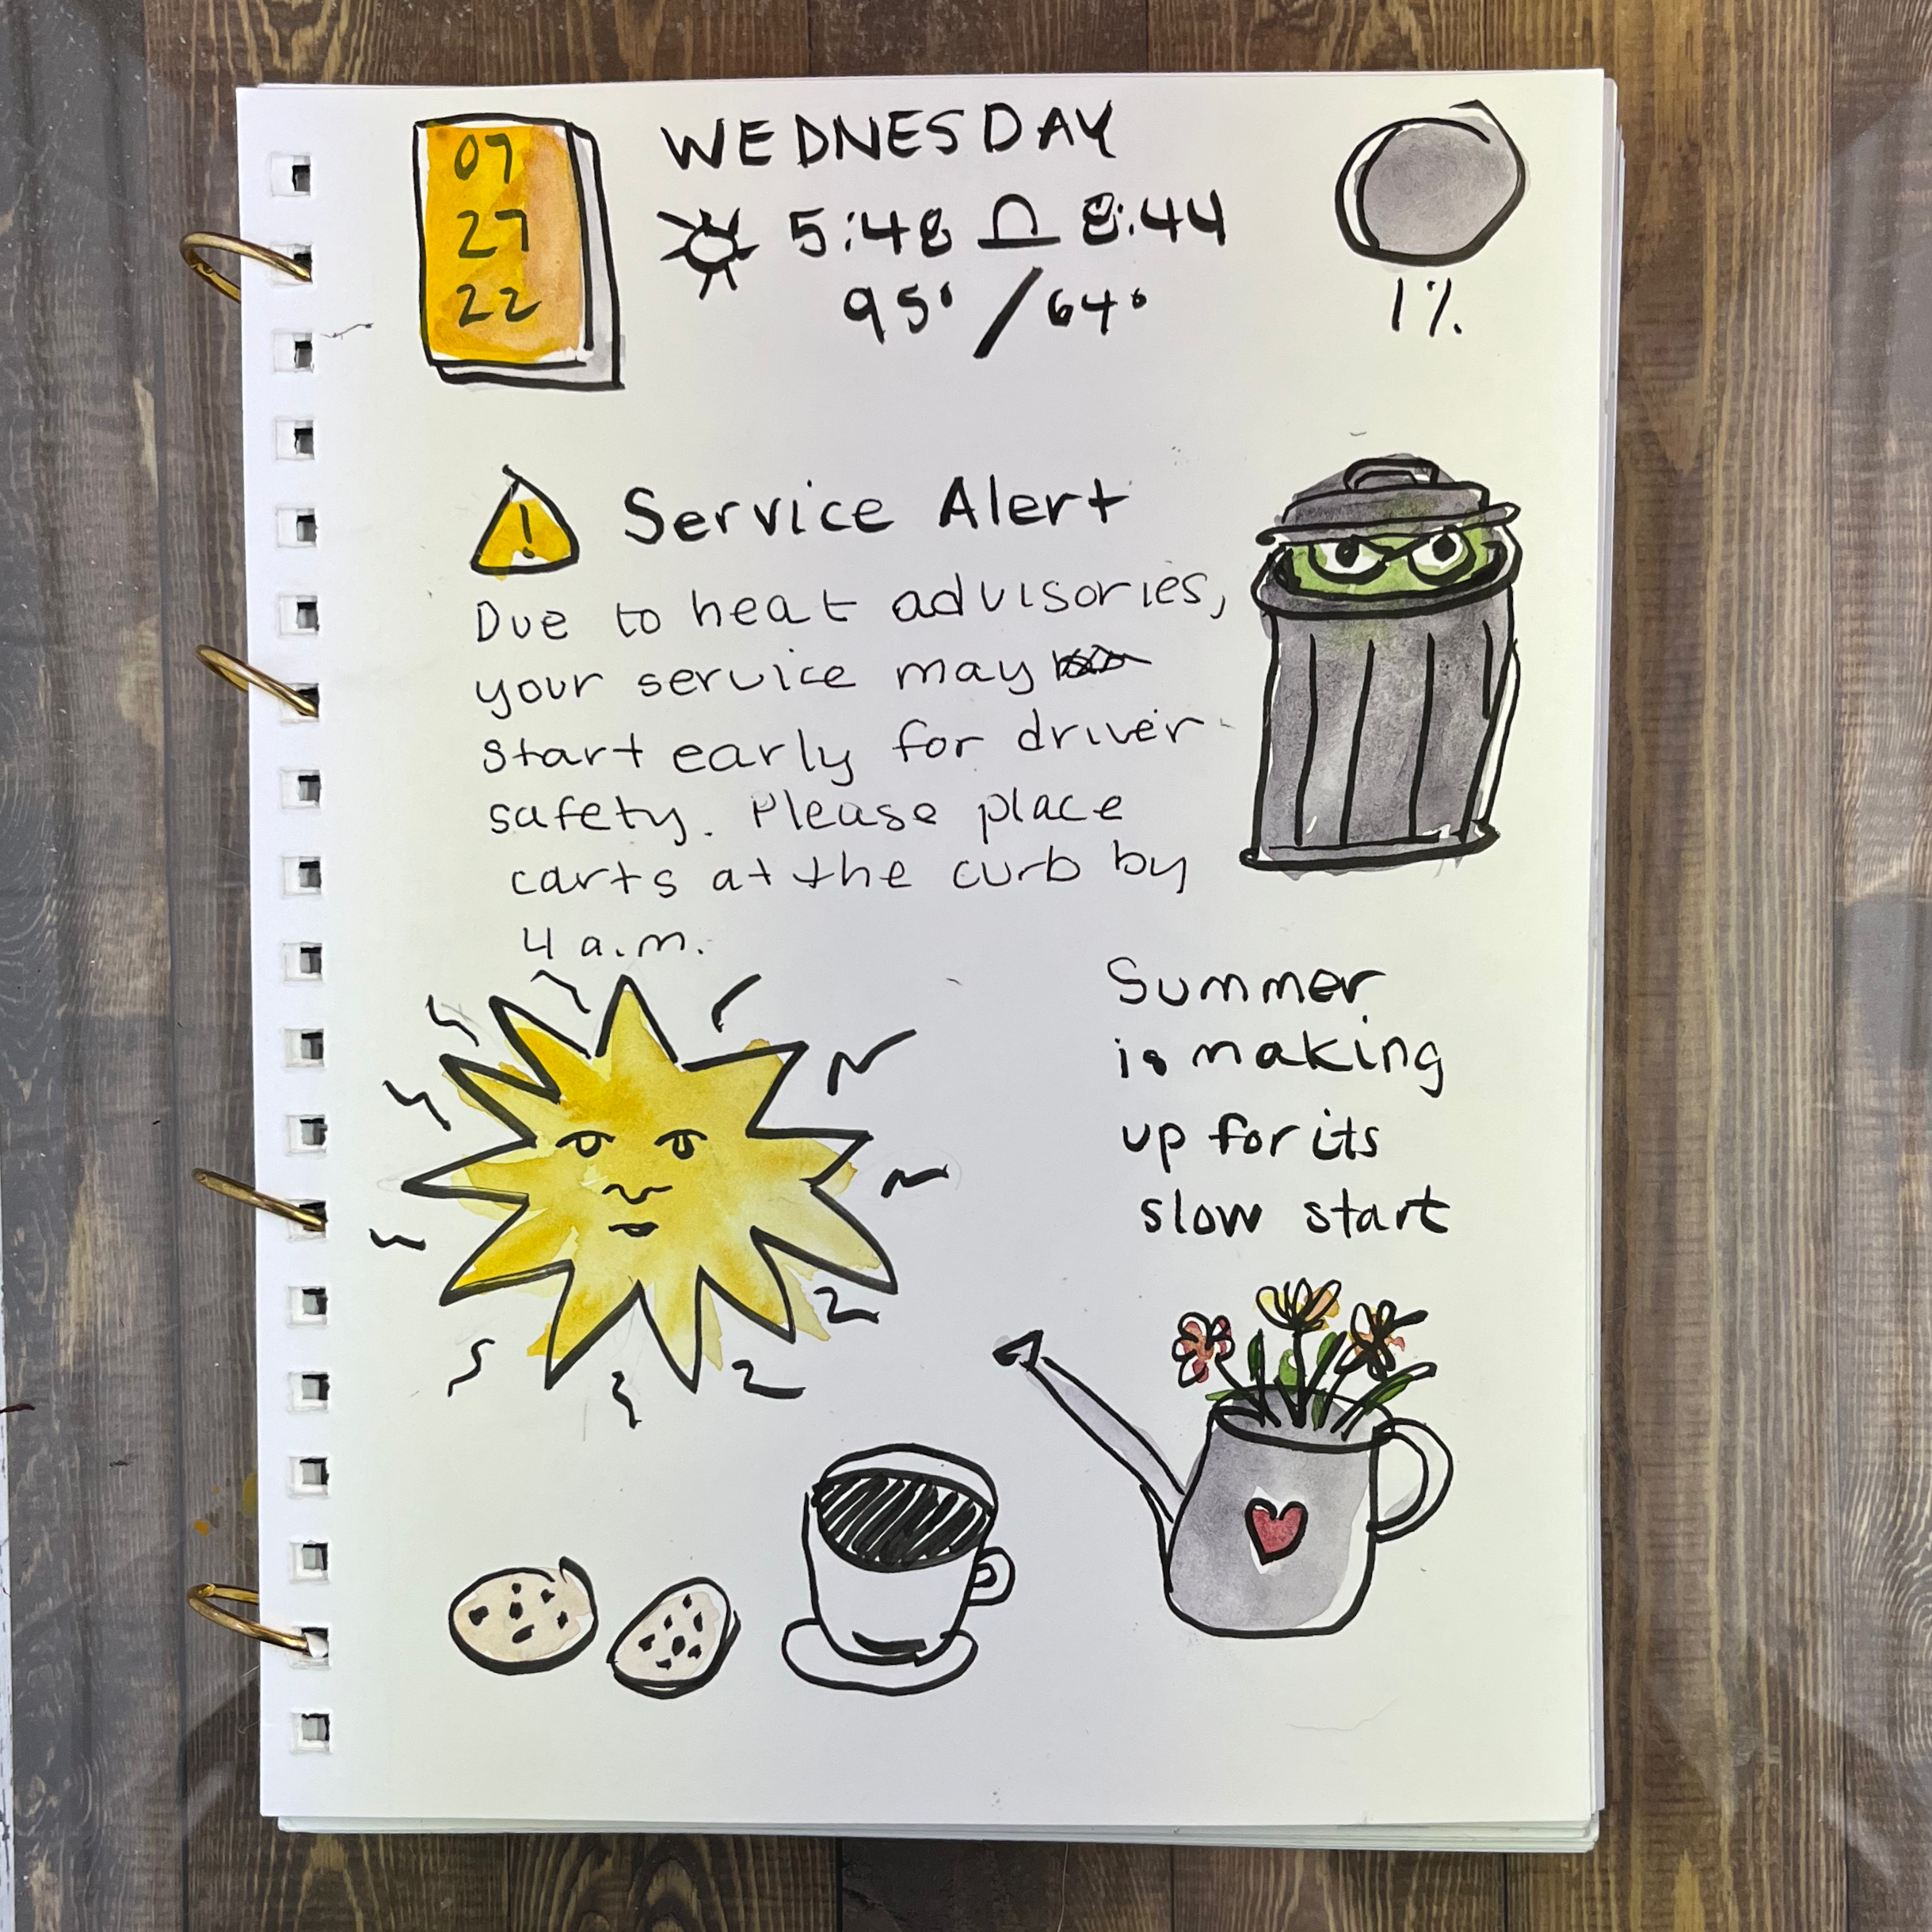 07
27
22
WEDNESDAY
5:48 8:44
95° / 64°
1%
! Service Alert
Due to heat advisories,
your service may
start early for driver
safety. Please place
carts at the curb by
4 a.m.
Summer
is making
up for its
slow start